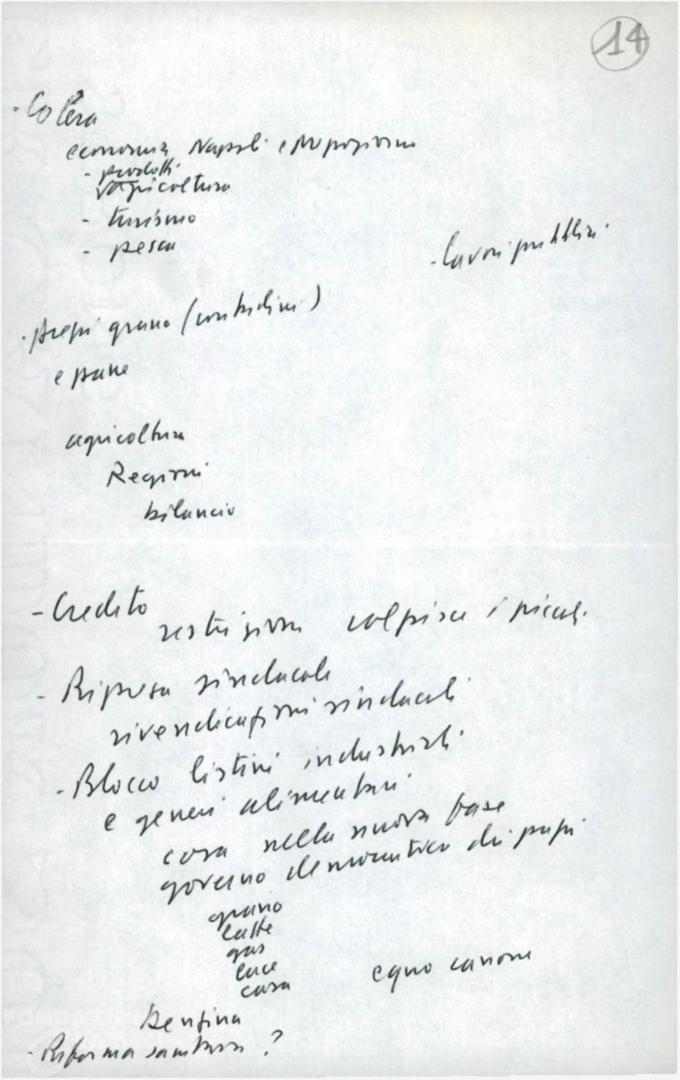 14
- Colera
economia Napoli e Mezzogiorno
- prodotti
agricoltura
- turismo
- pesca
- lavori pubblici
- prezzi grano (contadini)
e pane
agricoltura
Regioni
bilancio
- Credito
restrizioni colpisce i piccoli
- Ripresa sindacale
rivendicazioni sindacali
- Blocco listini industriali
e generi alimentari
cosa nella nuova fase
governo democratico dei prezzi
grano
latte
gas
luce
casa
equo canone
benzina
- Riforma sanitaria ?